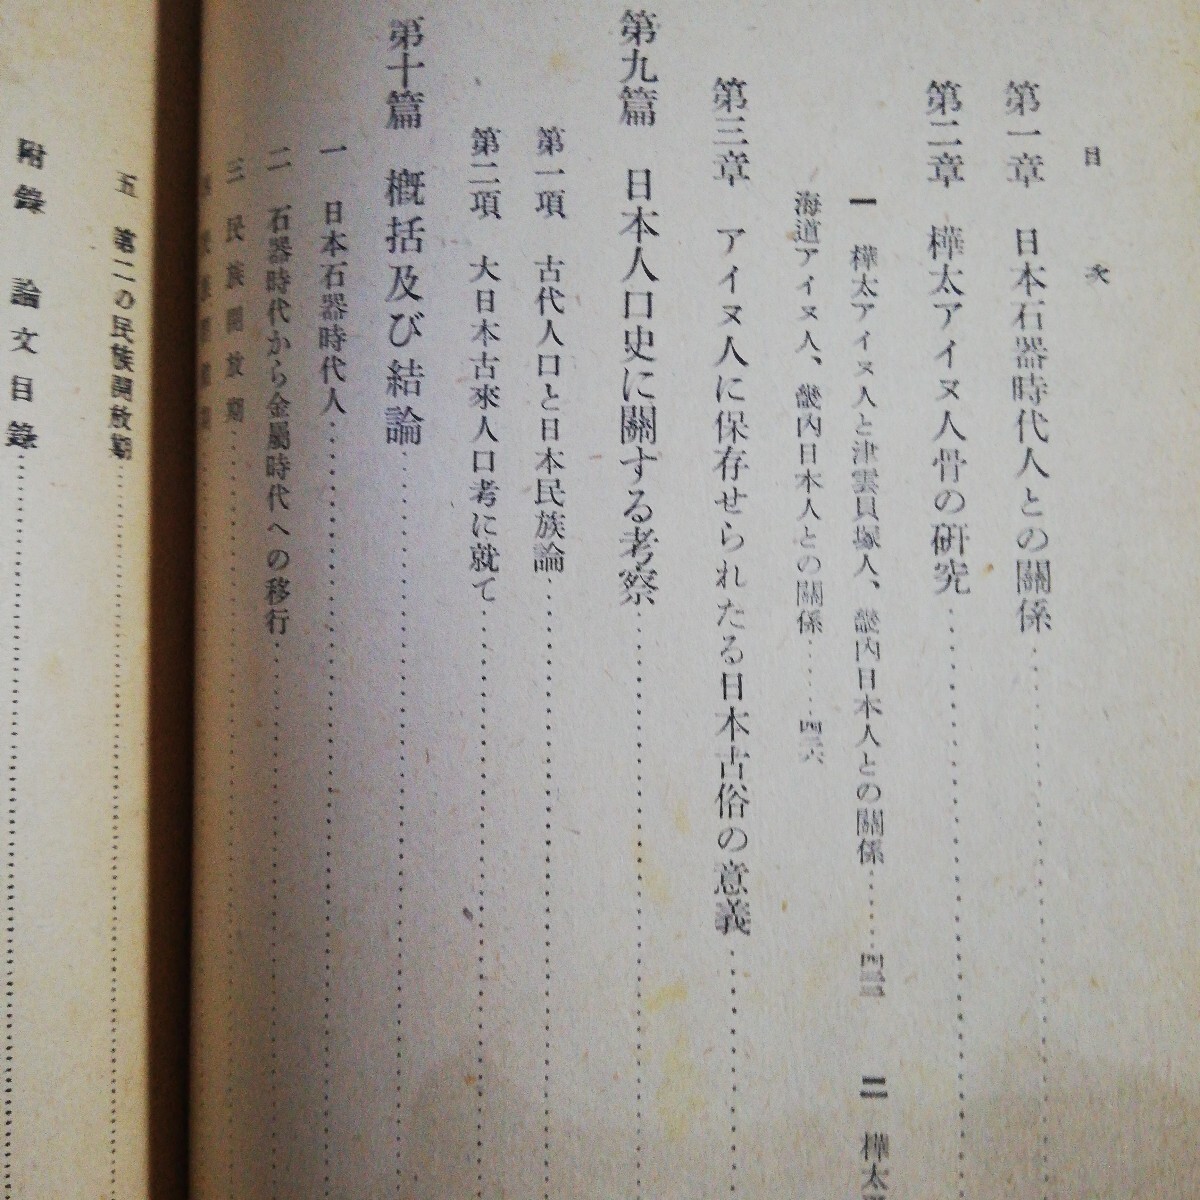 目次
第一章 日本石器時代人との關係
第二章 樺太アイヌ人骨の硏究
一 樺太アイヌ人と津雲貝塚人、畿内日本人との關係
二 樺太
海道アイヌ人、畿内日本人との關係
第三章 アイヌ人に保存せられたる日本古俗の意義
第九篇 日本人口史に關する考察
第一項 古代人口と日本民族論
第二項 大日本古來人口考に就て
第十篇 槪括及び結論
一 日本石器時代人
二 石器時代から金屬時代への移行
三 民族開放期
五 第二の民族開放期
附錄 論文目錄